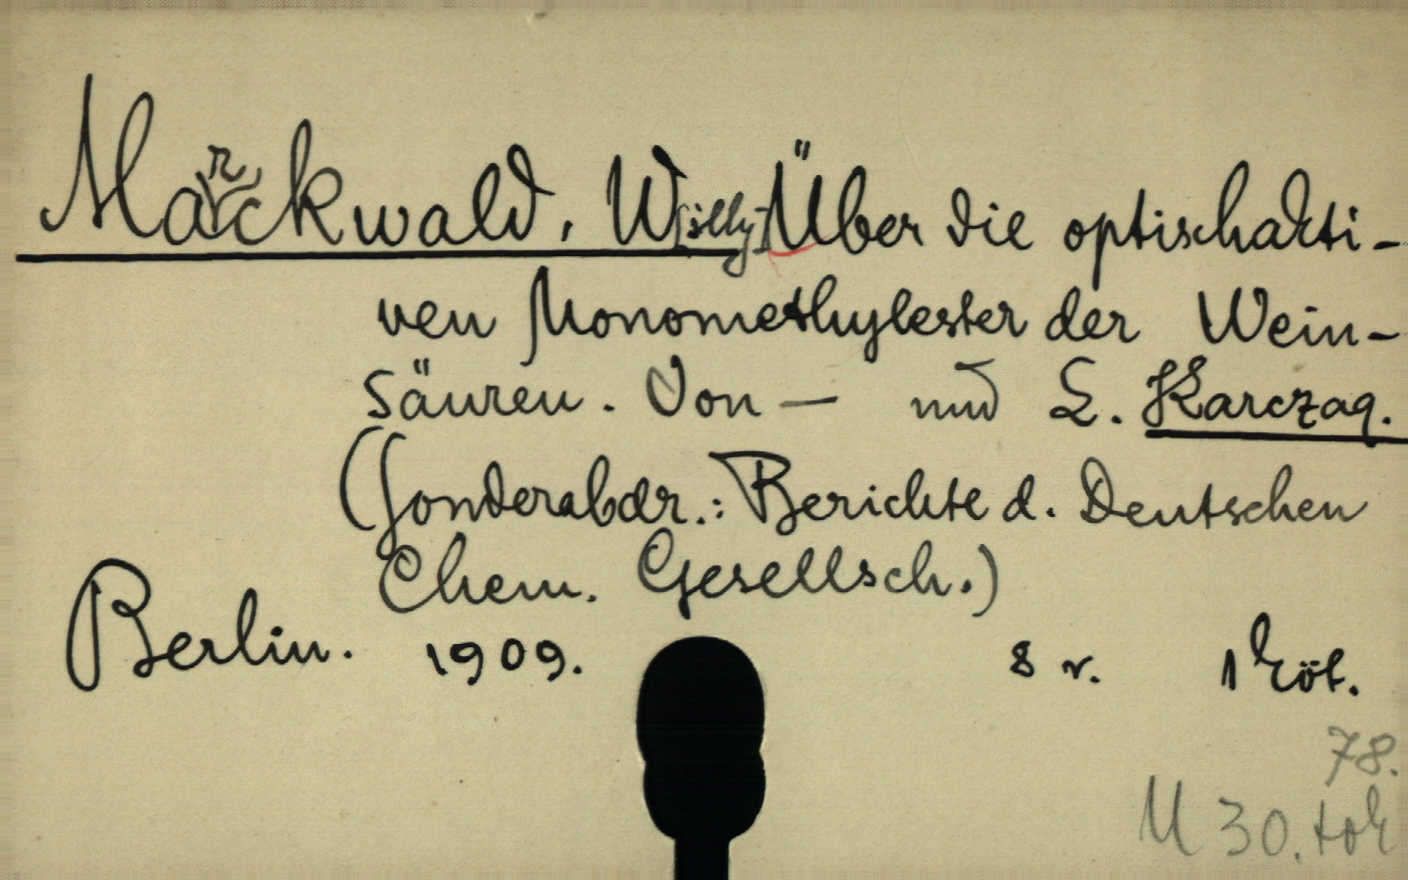 Marckwald, W[illy] Über die optischakti-
ven Monomethylester der Wein-
säuren. Von — und L. Karczag.
(Sonderabdr.: Berichte d. Deutschen
Chem. Gesellsch.)
Berlin. 1909. 8 r. 1 köt.
78.
M 30. tok